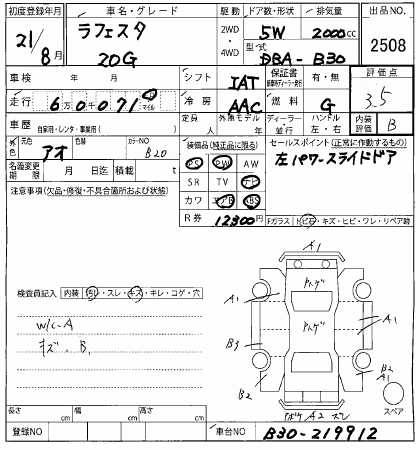 初度登録年月 車名・グレード 駆動 ドア数・形状 排気量 出品NO
21/8月 ラフェスタ 20G 2WD・4WD 5W 2000cc 2508
型式 DBA-B30
車検 年 月 シフト IAT 保証書 有・無 評価点 3.5
走行 6万0071 マイル 冷房 AAC 燃料 G
車歴 自家用・レンタ・事業用( ) 定員 人 外車モデル ディーラー・並行 ハンドル 左・右 内装評価 B
外色 元色 アオ 色替 カラーNO B20
装備品(純正品に限る) セールスポイント(正常に作動するもの)
左パワースライドドア
PS PW AW
名義変更期限 月 日迄 積載 t SR TV ナビ
注意事項(欠品・修復・不具合箇所および状態) カワ エアB ABS
R券 12300円
Fガラス トビ石・キズ・ヒビ・ワレ・リペア跡
検査員記入 内装 汚レ・スレ・キズ・キレ・コゲ・穴
W/C-A
キズ、B,
A1
A1
A1
B3
B2
B2
A1
A2 スレ
スペア
長さ cm 幅 cm 高さ cm
登録NO 車台NO B30-219912